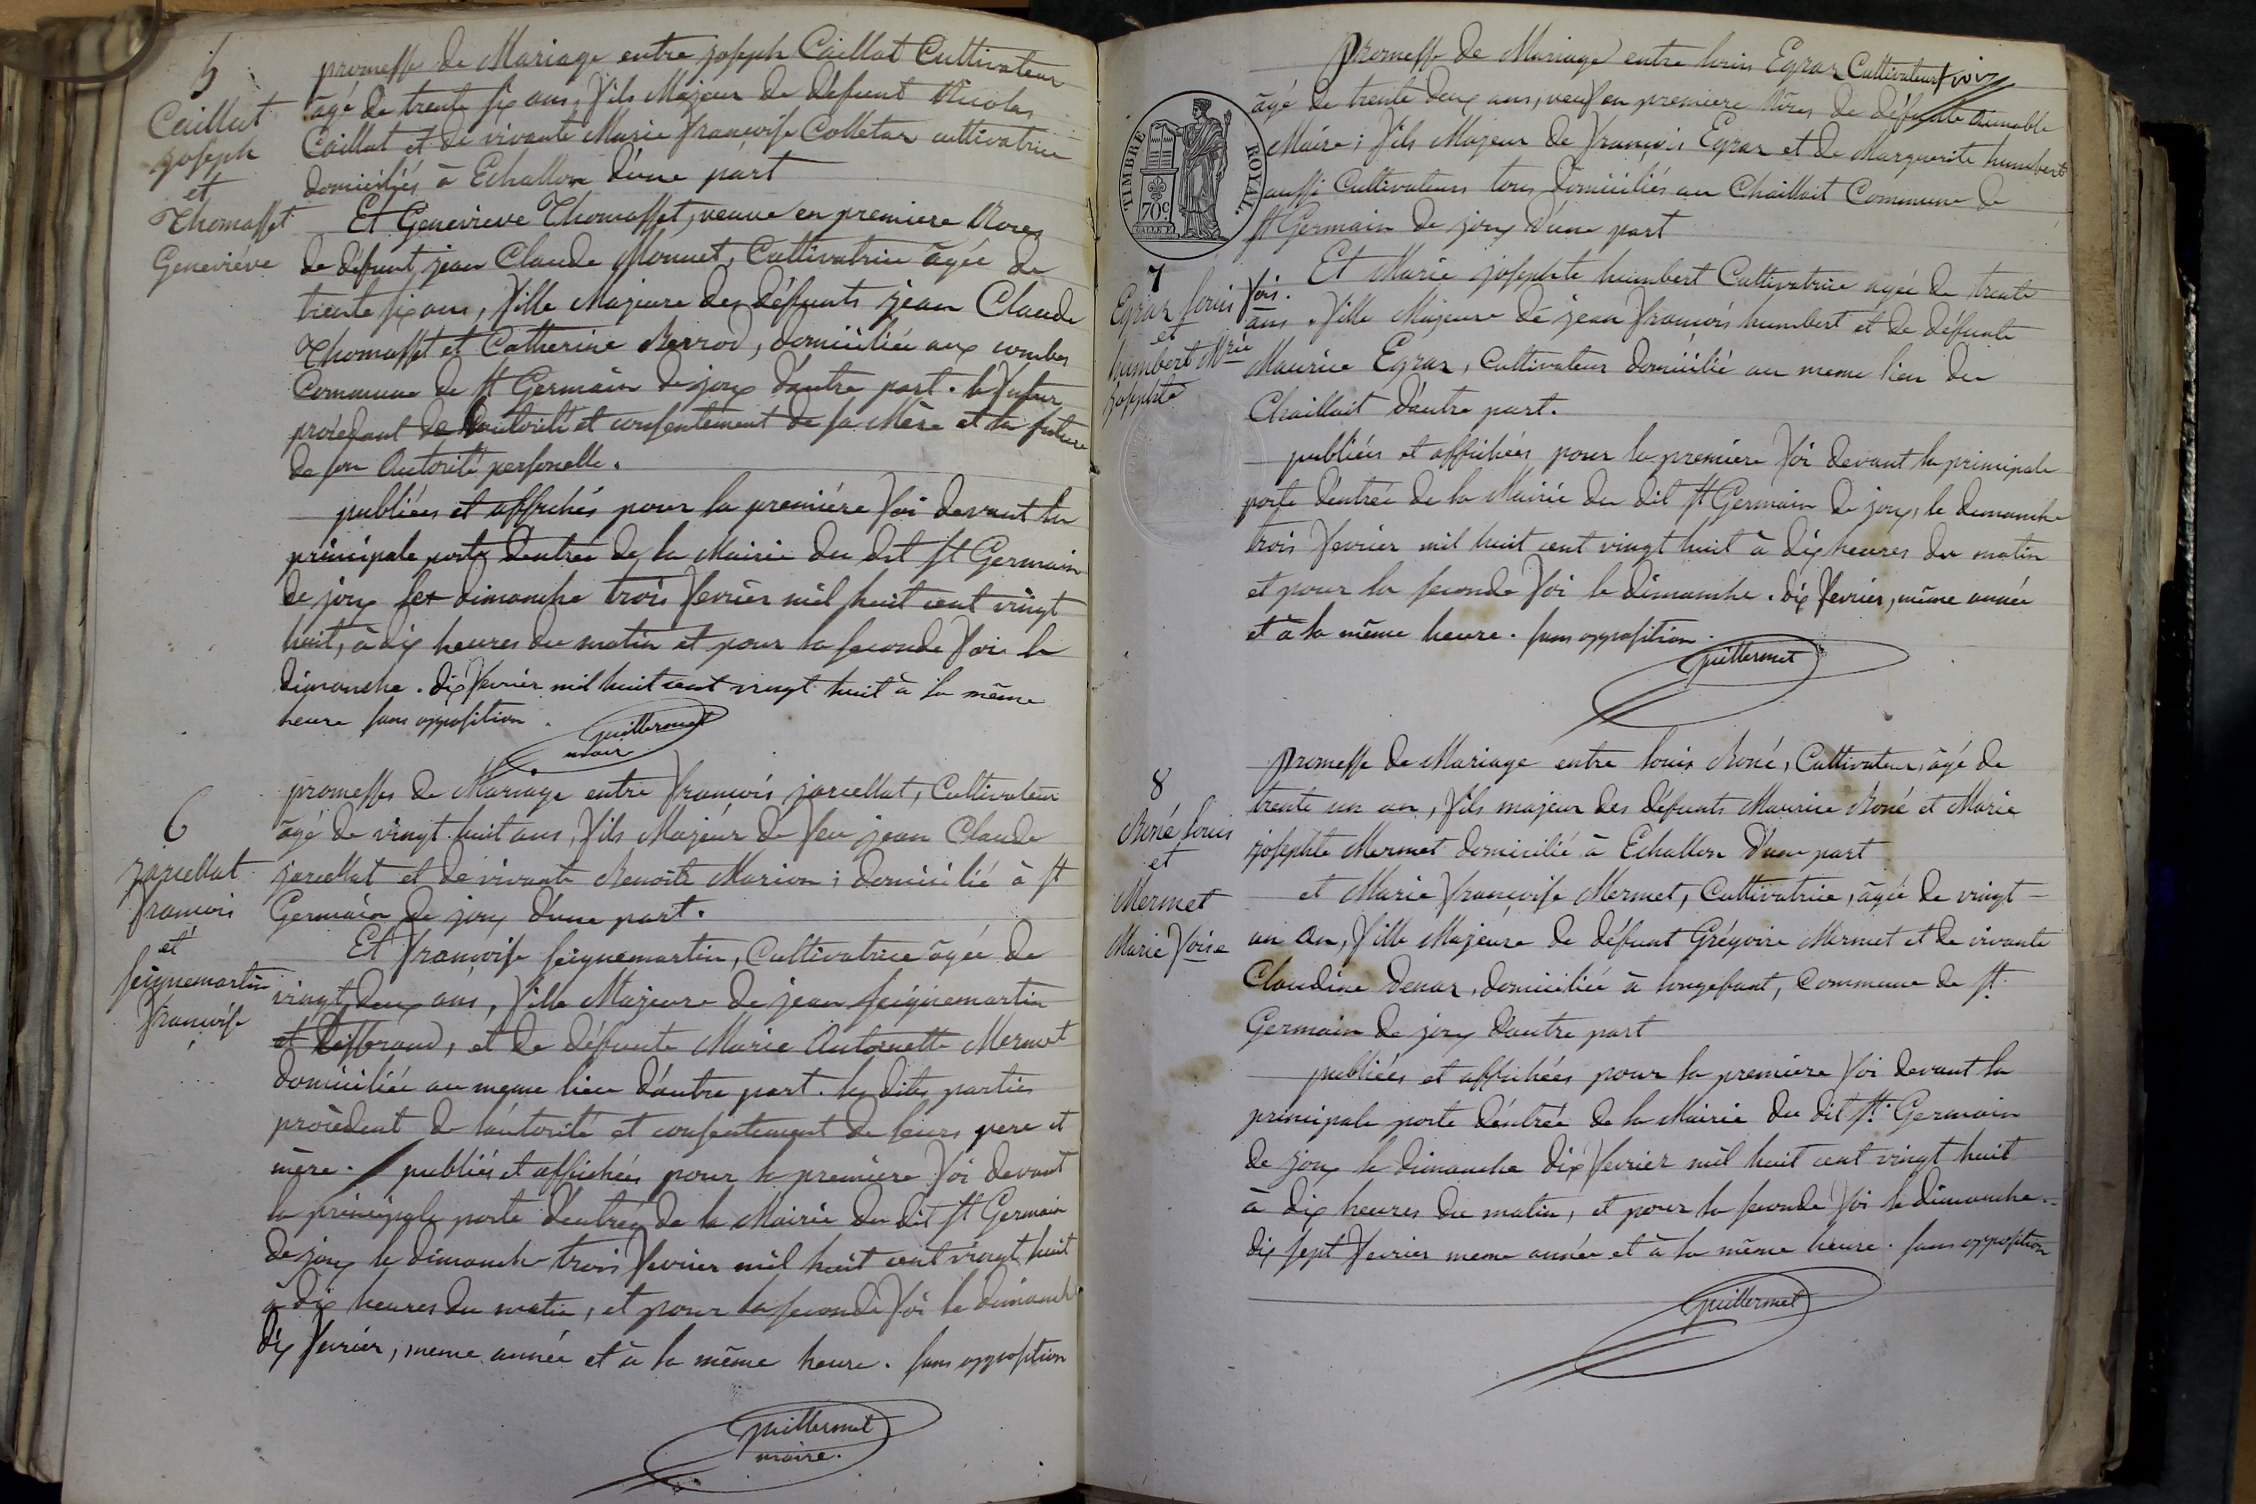 5
Caillat
joseph
et
Thomasset
Geneviéve
promesses de Mariage entre joseph Caillat Cultivateur
âgé de trente six ans, fils Majeur de défunt Nicolas
Caillat et de vivante Marie françoise Colletar cultivatrice
domiciliés à Echallon d'une part
Et Genevieve Thomasset, veuve en premiere Noces
de défunt jean Claude Monnet, Cultivatrice âgée de
trente six ans, fille Majeure des défunts jean Claude
Thomassét et Catherine Berrod, domiciliée aux combes
Commune de st Germain de joux d'autre part. le futur
procédant de l'autorité et consentement de sa Mère et la future
de son Autorité personelle.
publiées et affichés pour la première foi devant la
principale porte d'entrée de la Mairie du dit st Germain
de joux le dimanche trois fevrier mil huit cent vingt
huit, à dix heures du matin et pour la seconde foi le
dimanche. dix fevrier mil huit cent vingt huit à la même
heure sans opposition.
Guillermet
maire
6
jarcellat
francois
et
seignemartin
françoise
promesses de Mariage entre françois jarcellat, Cultivateur
âgé de vingt huit ans, fils Majeur de feu jean Claude
jarcellat et de vivante Benoite Marion; domicilié à st
Germain de joux d'une part.
Et françoise seignemartin, Cultivatrice âgée de
vingt deux ans, fille Majeure de jean seignemartin
et de défunte Marie Antoinette Mermet
domiciliée au meme lieu d'autre part. les dites parties
procèdent de l'autorité et consentement de leurs pere et
mère. publiés et affichées pour la première foi devant
la principale porte d'entrée de la Mairie du dit st Germain
de joux le dimanche trois fevrier mil huit cent vingt huit
à dix heures du matin, et pour la seconde foi le dimanche
dix fevrier, meme année et à la même heure. sans opposition
Guillermet
maire.
promesse de Mariage entre louis Egraz Cultivateur
âgé de trente deux ans, veuf en premiere Nôces de défunte aimable
Maire; fils Majeur de françois Egraz et de Marguerite humbert
aussi Cultivateurs tous domiciliés au Chaillait Commune de
st Germain de joux d'une part
TIMBRE ROYAL.
70c
7
Egraz louis
et
humbert Mrie
josephte
fois. Et Marie josephte humbert Cultivatrice agée de trente
ans. fille Majeure de jean françois humbert et de défunte
Maurice Egraz, Cultivateur domicilié au meme lieu du
Chaillait d'autre part.
publiées et affichées pour la premiere foi devant la principale
porte d'entrée de la Mairie du dit st Germain de joux, le dimanche
trois fevrier mil huit cent vingt huit à dix heures du matin
et pour la seconde foi le dimanche. dix fevrier, même année
et à la même heure. sans opposition.
Guillermet
8
Roné louis
et
Mermet
Marie foise
promesse de Mariage entre louis Roné, Cultivateur, âgé de
trente un an, fils majeur des défunts Maurice Roné et Marie
josephte Mermet domicilié à Echallon d'une part
et Marie françoise Mermet, Cultivatrice, âgée de vingt
un an, fille Majeure de défunt Grégoire Mermet et de vivante
Claudine Venar, domiciliée à longefant, Commune de st
Germain de joux d'autre part
publiées et affichées pour la premiere foi devant la
principale porte d'éntrée de la Mairie du dit st. Germain
de joux le dimanche dix fevrier mil huit cent vingt huit
à dix heures du matin, et pour la seconde foi le dimanche
dix sept fevrier meme année et à la même heure. sans opposition
Guillermet